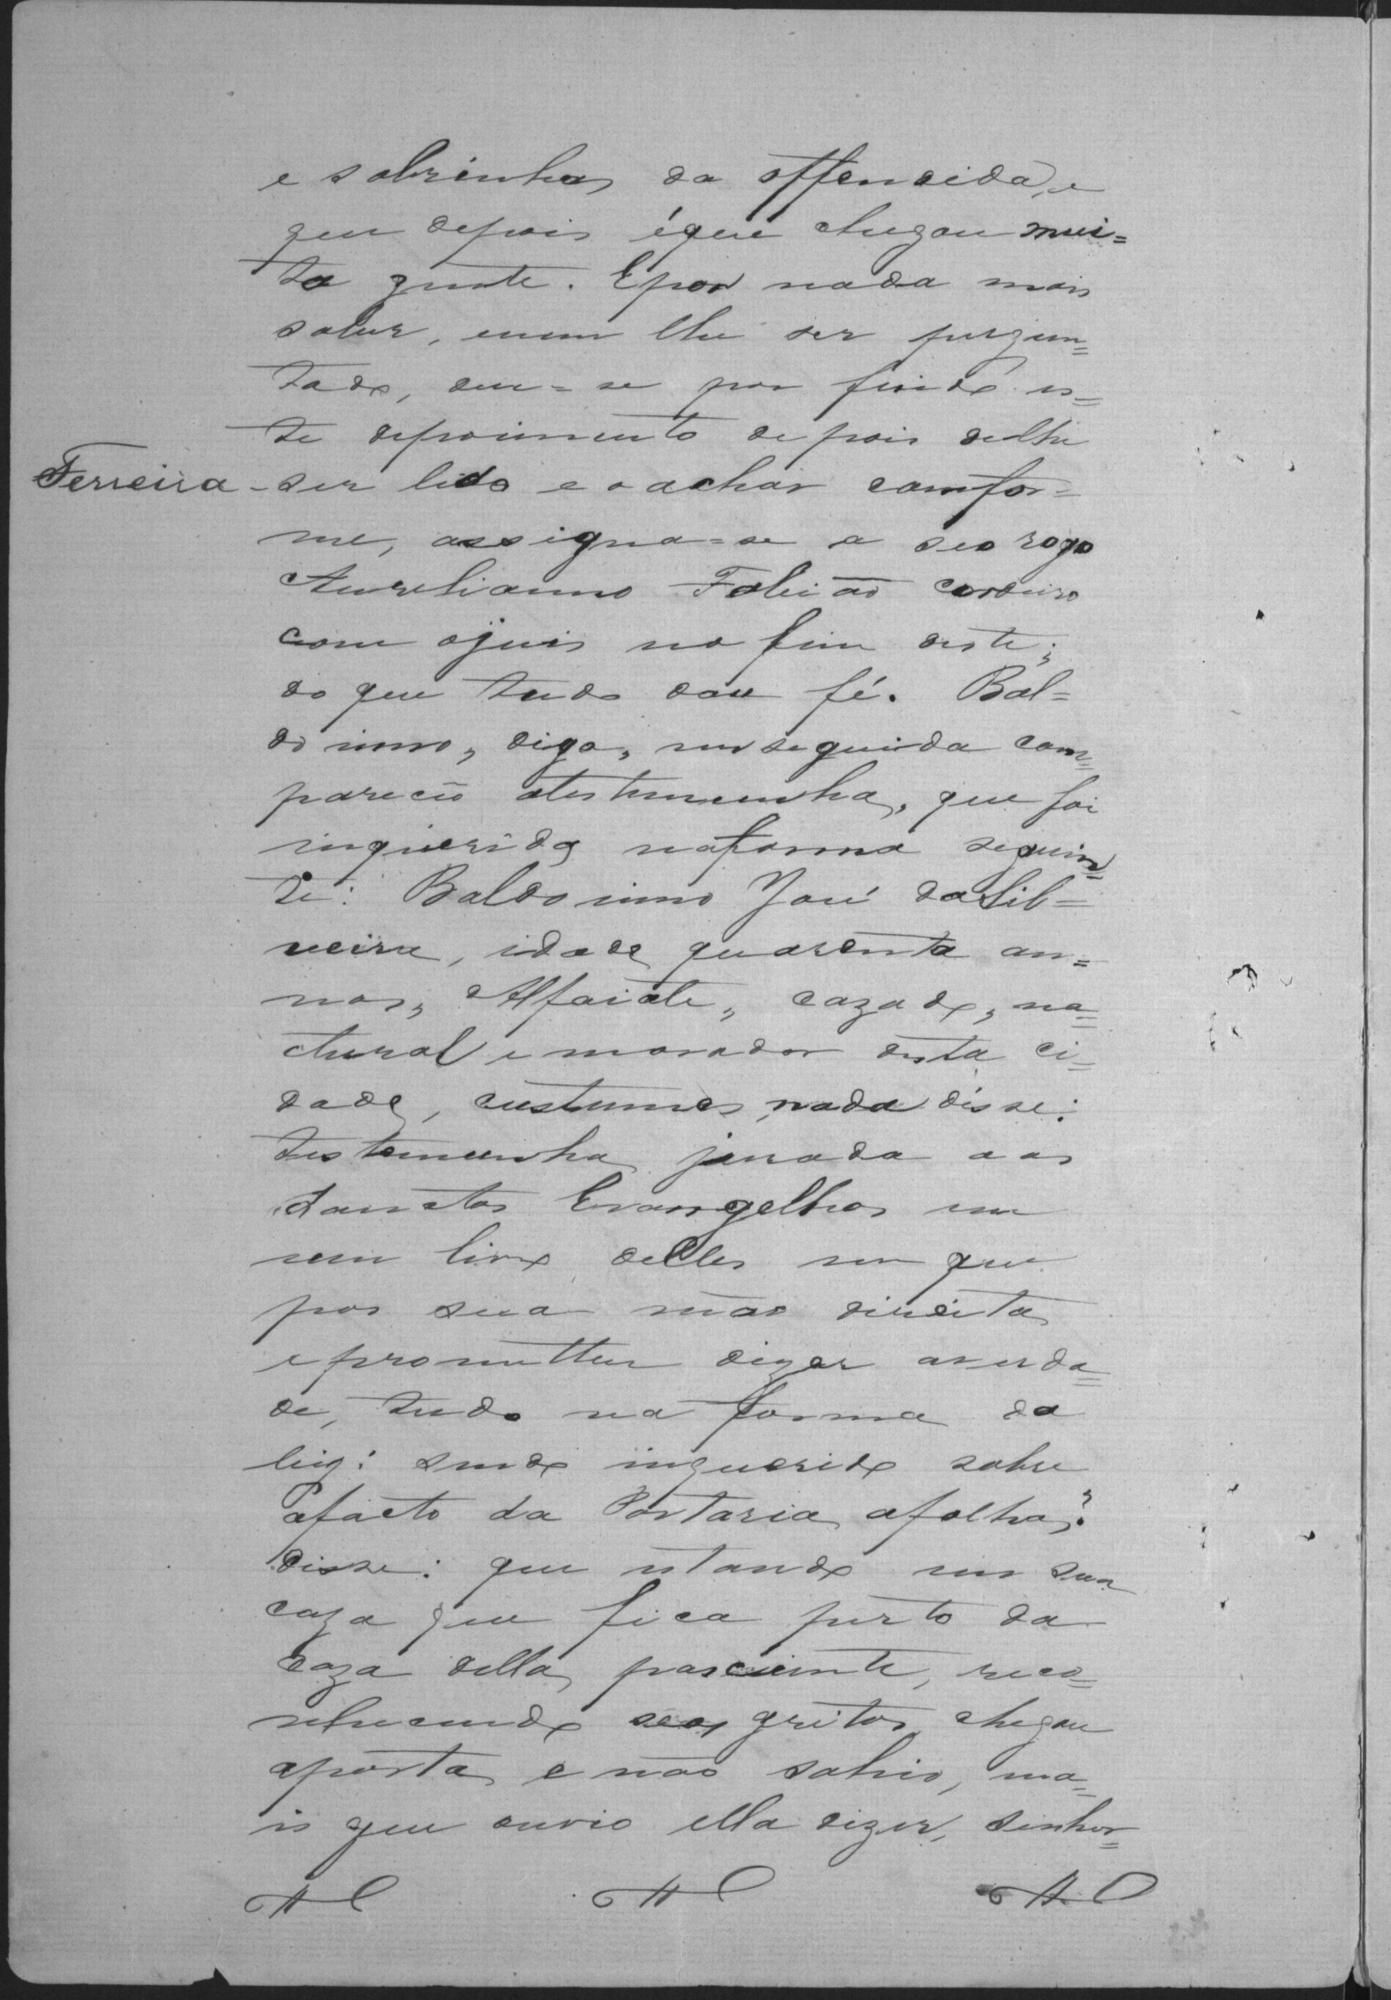 e sobrinhas da offendida, e
que depois é que chegou mui=
ta gente. E por nada mais
saber, nem lhe ser pergun=
tado, deu=se por findo es=
te depoimento depois de lhe
Ferreira - ser lido e o achar comfor=
me, assigna=se a seo rogo
Aurelianno Fabião Cordeiro
com o juis no fim deste;
do que tudo dou fé. Bal=
doinno, digo, em seguida com=
pareceo a testemunha, que foi
inquerida na forma seguin=
te: Baldoinno José da Sil=
veira, idade quarenta an=
nos, Alfaiate, cazado, na=
tural e morador desta ci=
dade, custumes nada disse:
testemunha jurada aos
Sanctos Evangelhos em
um livro delles em que
pos sua mão direita
e prometteu dizer a verda=
de, tudo na forma da
lei; sendo inquerido sobre
o facto da Portaria a folha 2.
disse: que estando em sua
caza que fica perto da
caza della pasciente, reco=
nhecendo seos gritos, chegou
a porta e não sahio, ma=
is que ouvio ella dizer, Senhor=